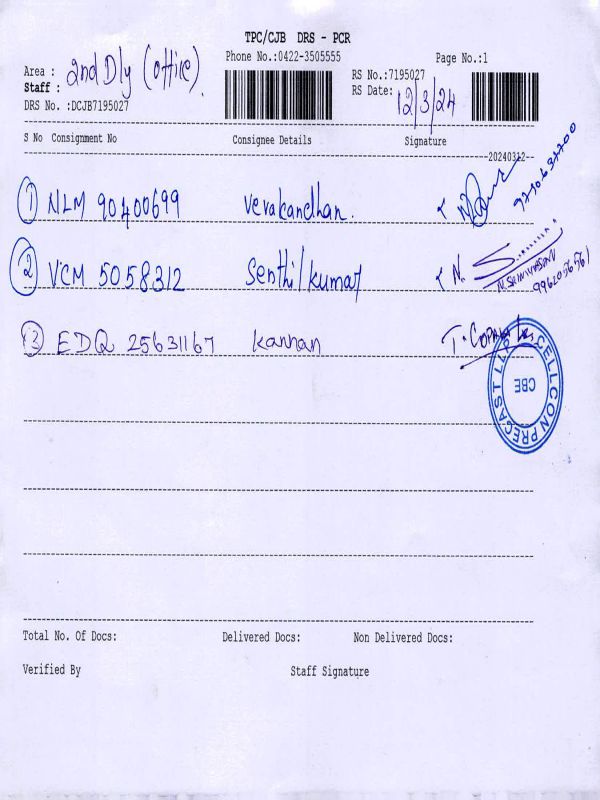 TPC/CJB DRS - PCR
Phone No.:0422-3505555
Page No.:1
Area : 2nd Dly (office)
Staff :
DRS No. :DCJB7195027
RS No.:7195027
RS Date: 12/3/24
S No Consignment No Consignee Details Signature
20240312
1 NLM 90400699 Verakandhan.
2 VCM 5058312 Senthilkumar N. S
N. SRINIVASAN
3 EDQ 25631167 Kannan T. Gopala
CELLCON PRECAST LLP
CBE
Total No. Of Docs: Delivered Docs: Non Delivered Docs:
Verified By Staff Signature